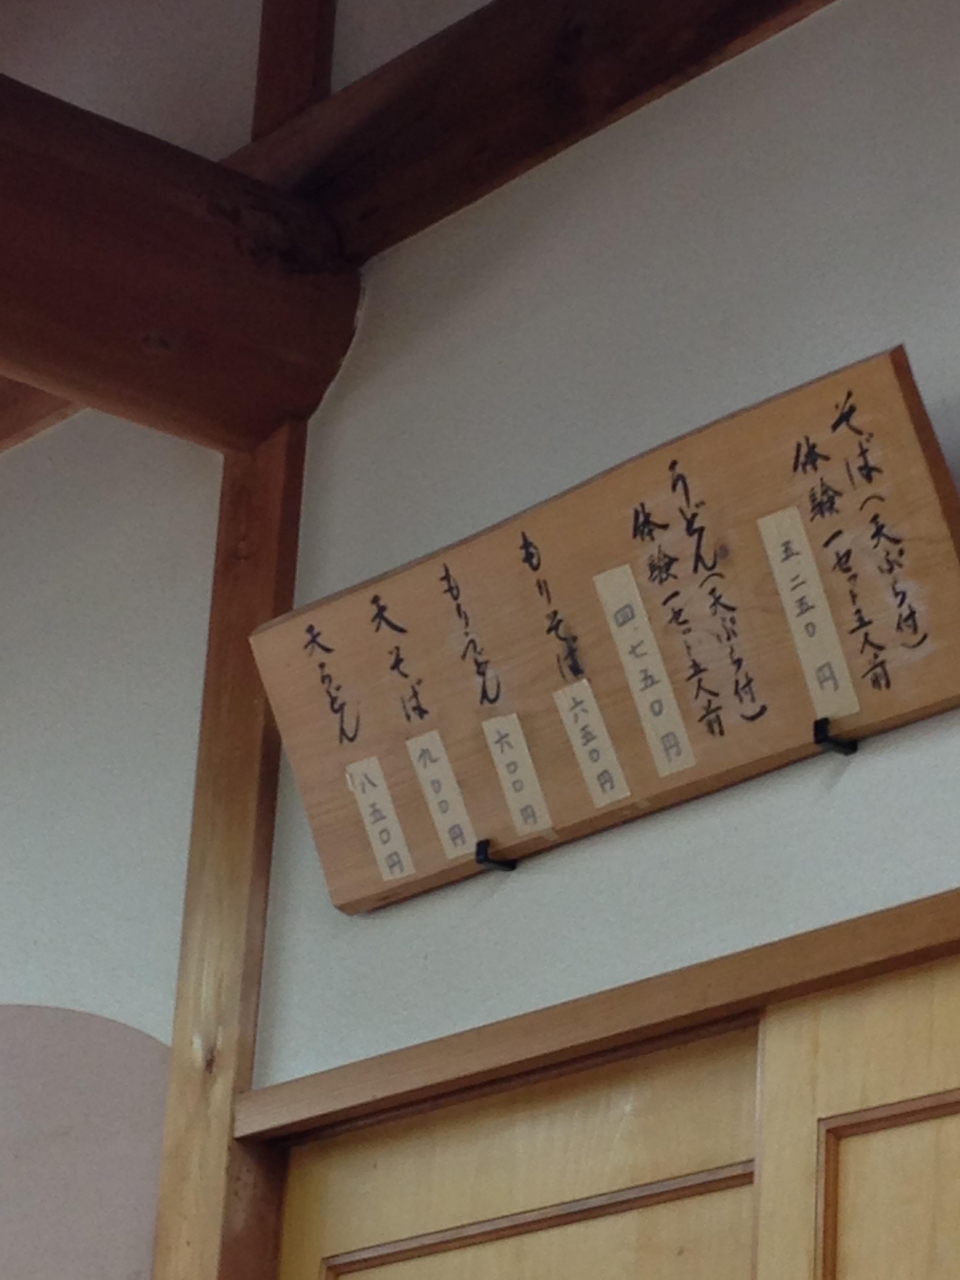 そば(天ぷら付)
体験一セット五人前
五.二五〇円
うどん(天ぷら付)
体験一セット五人前
四.七五〇円
もりそば
六五〇円
もりうどん
六〇〇円
天そば
九〇〇円
天うどん
八五〇円